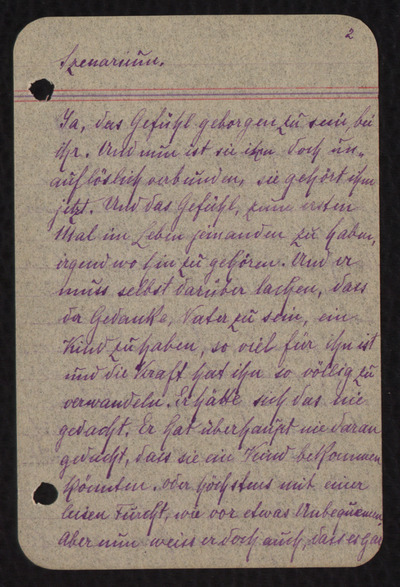 2
Szenarium.
Ja, das Gefühl geborgen zu sein, bei
ihr. Und nun ist sie ihm doch un-
auflöslich verbunden, sie gehört ihm
jetzt. Und das Gefühl, zum ersten
Mal im Leben jemanden zu haben,
irgendwo hin zu gehören. Und er
muss selbst darüber lachen, dass
der Gedanke, Vater zu sein, ein
Kind zu haben, so viel für ihn ist
und die Kraft hat ihn so völlig zu
verwandeln. Er hätte sich das nie
gedacht. Er hat überhaupt nie daran
gedacht, dass sie ein Kind bekommen
könnten, oder höchstens mit einer
leisen Furcht, wie vor etwas Unbequemem,
Aber nun weiss er doch auch, dass es gar